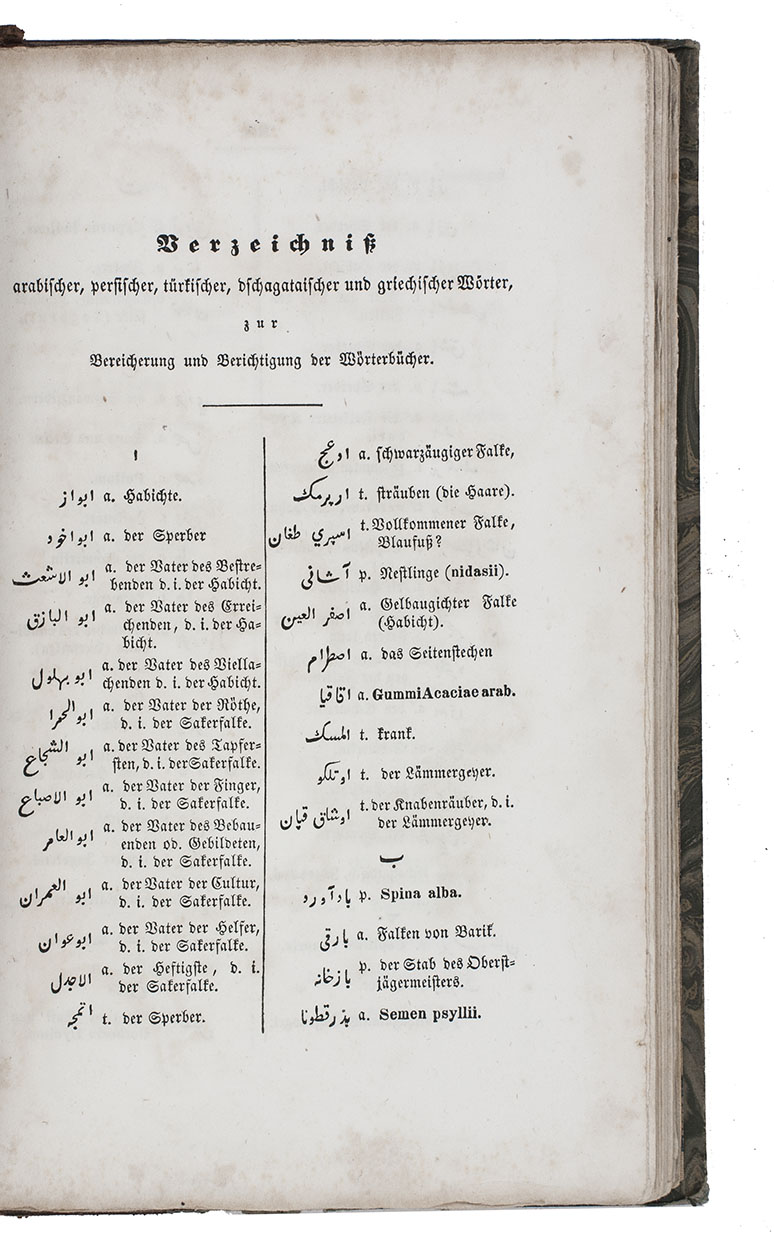 Verzeichniß
arabischer, persischer, türkischer, dschagataischer und griechischer Wörter,
zur
Bereicherung und Berichtigung der Wörterbücher.
ا
ابواز a. Habichte.
ابواخود a. der Sperber
ابو الاشعث a. der Vater des Bestre-
benden d. i. der Habicht.
ابو البازق a. der Vater des Errei-
chenden, d. i. der Ha-
bicht.
ابو بهلول a. der Vater des Viella-
chenden d. i. der Habicht.
ابو الحمرا a. der Vater der Röthe,
d. i. der Sakerfalke.
ابو الشجاع a. der Vater des Tapfer-
sten, d. i. der Sakerfalke.
ابو الاصباع a. der Vater der Finger,
d. i. der Sakerfalke.
ابو العامر a. der Vater des Bebau-
enden od. Gebildeten,
d. i. der Sakerfalke.
ابو العمران a. der Vater der Cultur,
d. i. der Sakerfalke.
ابو عوان a. der Vater der Helfer,
d. i. der Sakerfalke.
الاجدل a. der Heftigste, d. i.
der Sakerfalke.
اتمجه t. der Sperber.
اوعج a. schwarzäugiger Falke,
ارپرمك t. sträuben (die Haare).
اسپري طغان t. Vollkommener Falke,
Blaufuß?
آشاني p. Nestlinge (nidasii).
اصفر العين a. Gelbaugichter Falke
(Habicht).
اصطرام a. das Seitenstechen
اقاقيا a. Gummi Acaciae arab.
المسك t. krank.
اوتلكو t. der Lämmergeyer.
اوشاق قپان t. der Knabenräuber, d. i.
der Lämmergeyer.
ب
بادآورد p. Spina alba.
بارقي a. Falken von Barik.
بازخانه p. der Stab des Oberst-
jägermeisters.
بذرقطونا a. Semen psyllii.